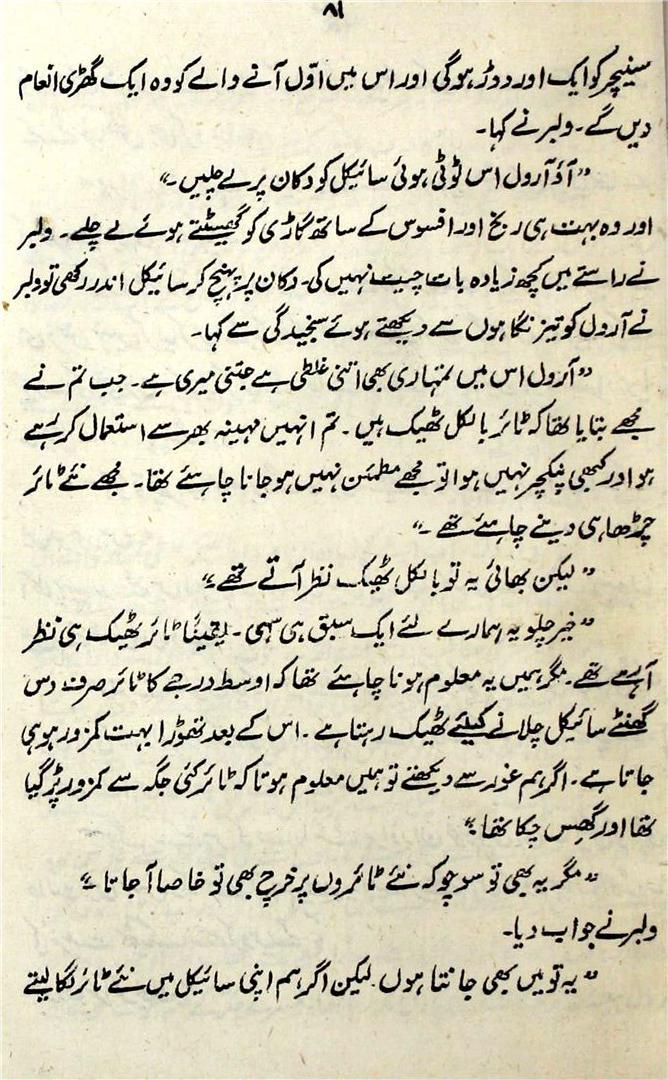 ۸۱
سنیچر کو ایک اور دوڑ ہوگی اور اس میں اوّل آنے والے کو وہ ایک گھڑی انعام
دیں گے۔ ولبر نے کہا۔
“آؤ آرول اس ٹوٹی ہوئی سائیکل کو دکان پر لے چلیں۔”
اور وہ بہت ہی رنج اور افسوس کے ساتھ گاڑی کو گھسیٹتے ہوئے لے چلے۔ ولبر
نے راستے میں کچھ زیادہ بات چیت نہیں کی۔ دکان پر پہنچ کر سائیکل اندر رکھی تو ولبر
نے آرول کو تیز نگاہوں سے دیکھتے ہوئے سنجیدگی سے کہا۔
“آرول اس میں تمہاری بھی اتنی غلطی ہے جتنی میری ہے۔ جب تم نے
مجھے بتایا تھا کہ ٹائر بالکل ٹھیک ہیں۔ تم انہیں مہینہ بھر سے استعمال کر رہے
ہو اور کبھی پنکچر نہیں ہوا تو مجھے مطمئن نہیں ہو جانا چاہئے تھا۔ مجھے نئے ٹائر
چڑھا ہی دینے چاہئے تھے۔”
“لیکن بھائی یہ تو بالکل ٹھیک نظر آتے تھے۔”
“خیر چلو یہ ہمارے لئے ایک سبق ہی سہی۔ یقیناً ٹائر ٹھیک ہی نظر
آ رہے تھے۔ مگر ہمیں یہ معلوم ہونا چاہئے تھا کہ اوسط درجے کا ٹائر صرف دس
گھنٹے سائیکل چلانے کیلئے ٹھیک رہتا ہے۔ اس کے بعد تھوڑا بہت کمزور ہو ہی
جاتا ہے۔ اگر ہم غور سے دیکھتے تو ہمیں معلوم ہوتا کہ ٹائر کئی جگہ سے کمزور پڑ گیا
تھا اور گھس چکا تھا۔”
“مگر یہ بھی تو سوچو کہ نئے ٹائروں پر خرچ بھی تو خاصا آ جاتا۔”
ولبر نے جواب دیا۔
“یہ تو میں بھی جانتا ہوں لیکن اگر ہم اپنی سائیکل میں نئے ٹائر لگا لیتے